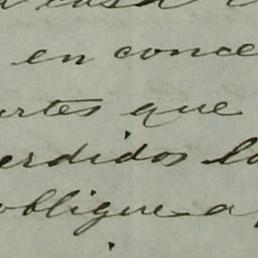 a casa
en conce
artes que
erdidos lo
oblique a